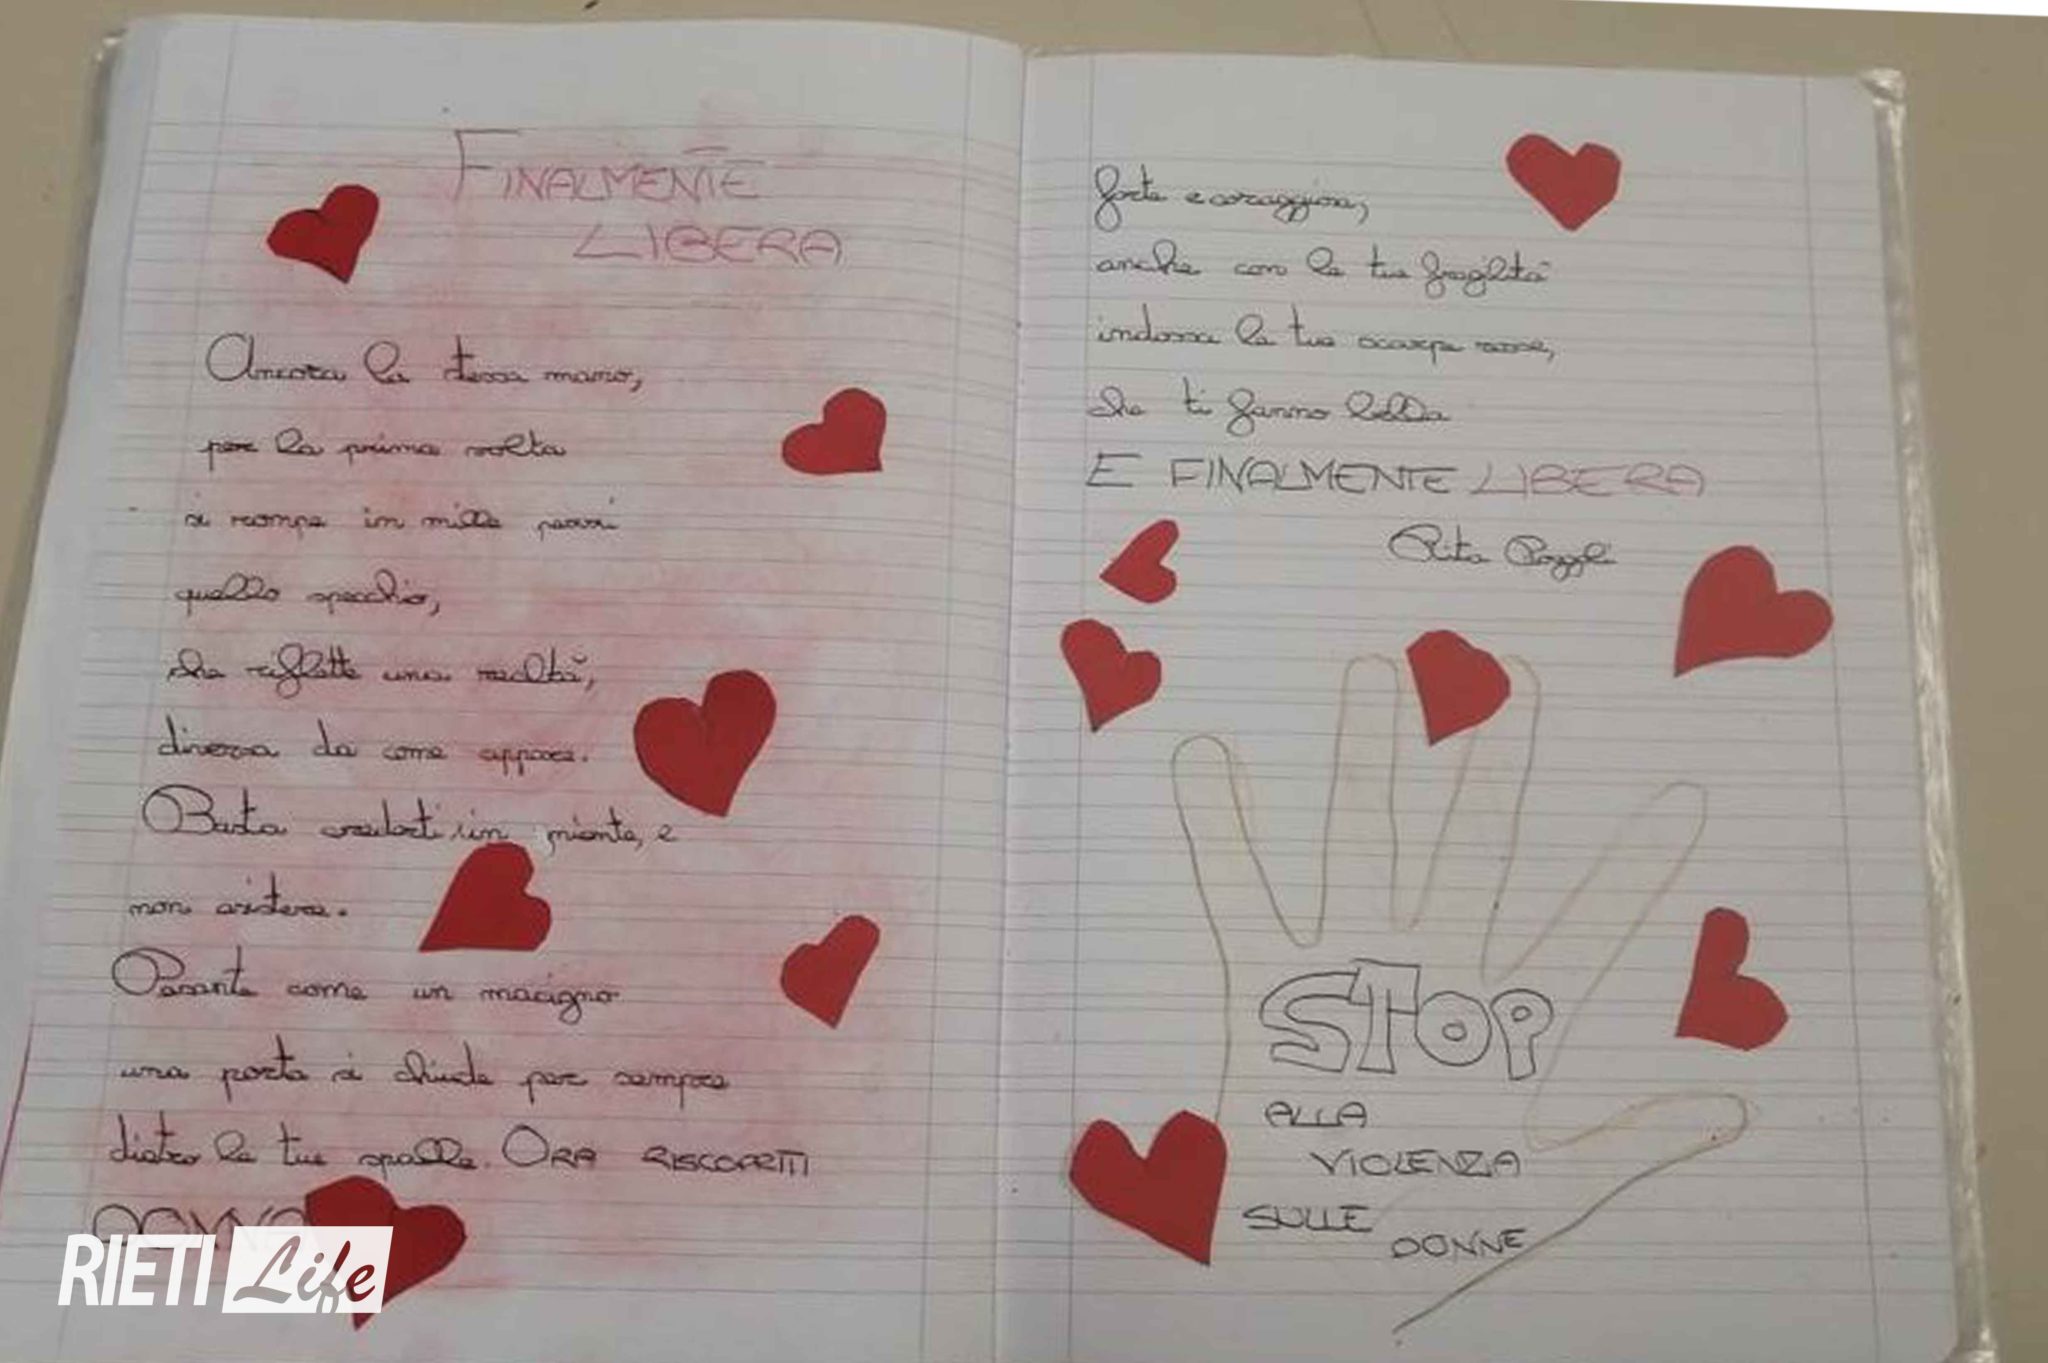 FINALMENTE
LIBERA
Ancora la stessa mano,
per la prima volta
si rompe in mille pezzi
quello specchio,
che riflette una realtà,
diversa da come appare.
Basta crederti un niente, e
non esistere.
Pesante come un macigno
una porta si chiude per sempre
dietro le tue spalle. ORA RISCOPRITI
DONNA
forte e coraggiosa,
anche con le tue fragilità
indossa le tue scarpe rosse,
che ti fanno bella
E FINALMENTE LIBERA
Rita
STOP
ALLA
VIOLENZA
SULLE
DONNE
RIETI Life